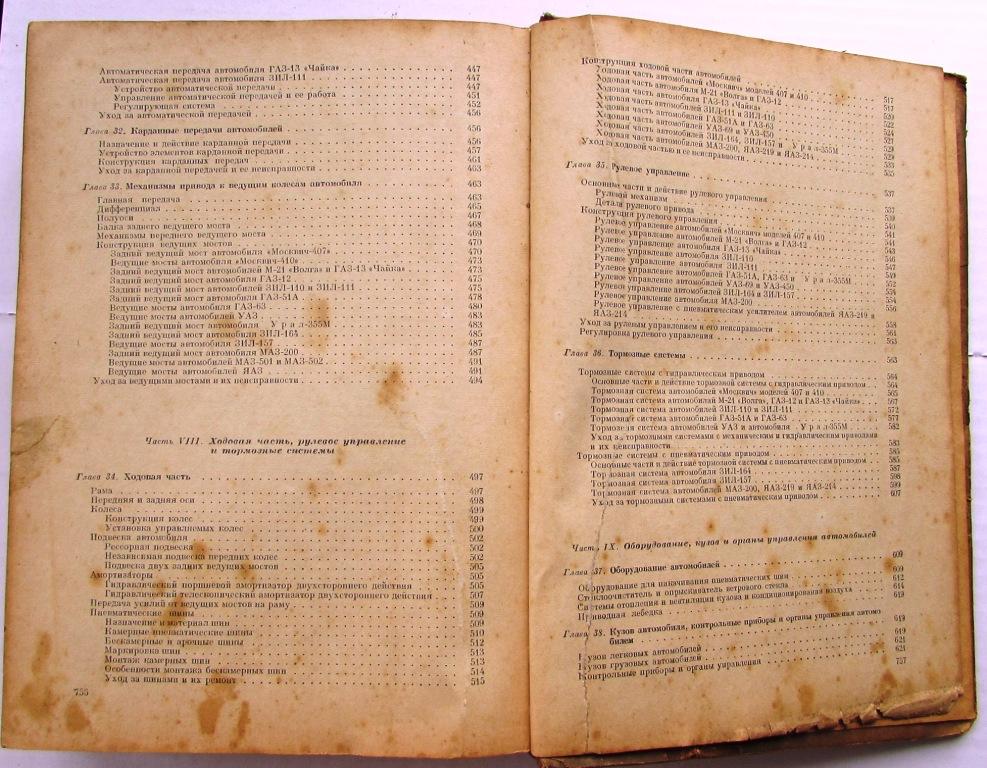 Автоматическая передача автомобиля ГАЗ-13 «Чайка» 447
Автоматическая передача автомобиля ЗИЛ-111 447
Устройство автоматической передачи 447
Управление автоматической передачей и ее работа 451
Регулирующая система 452
Уход за автоматической передачей 456
Глава 32. Карданные передачи автомобилей 456
Назначение и действие карданной передачи 456
Устройство элементов карданной передачи 457
Конструкция карданных передач 461
Уход за карданной передачей и ее неисправности 463
Глава 33. Механизмы привода к ведущим колесам автомобиля 463
Главная передача 463
Дифференциал 465
Полуоси 467
Балка заднего ведущего моста 468
Механизмы переднего ведущего моста 469
Конструкция ведущих мостов 470
Задний ведущий мост автомобиля «Москвич-407» 470
Ведущие мосты автомобиля «Москвич-410» 473
Задний ведущий мост автомобилей М-21 «Волга» и ГАЗ-13 «Чайка» 473
Задний ведущий мост автомобиля ГАЗ-12 475
Задний ведущий мост автомобилей ЗИЛ-110 и ЗИЛ-111 475
Задний ведущий мост автомобиля ГАЗ-51А 478
Ведущие мосты автомобиля ГАЗ-63 480
Ведущие мосты автомобилей УАЗ 483
Задний ведущий мост автомобиля Урал-355М 483
Задний ведущий мост автомобиля ЗИЛ-164 485
Ведущие мосты автомобиля ЗИЛ-157 487
Задний ведущий мост автомобиля МАЗ-200 487
Ведущие мосты автомобилей МАЗ-501 и МАЗ-502 491
Ведущие мосты автомобилей ЯАЗ 491
Уход за ведущими мостами и их неисправности 494
Часть VIII. Ходовая часть, рулевое управление
и тормозные системы
Глава 34. Ходовая часть 497
Рама 497
Передняя и задняя оси 498
Колеса 499
Конструкция колес 499
Установка управляемых колес 500
Подвеска автомобиля 502
Рессорная подвеска 502
Независимая подвеска передних колес 502
Подвеска двух задних ведущих мостов 505
Амортизаторы 505
Гидравлический поршневой амортизатор двухстороннего действия 505
Гидравлический телескопический амортизатор двухстороннего действия 507
Передача усилий от ведущих мостов на раму 509
Пневматические шины 509
Назначение и материал шин 509
Камерные пневматические шины 510
Бескамерные и арочные шины 512
Маркировка шин 513
Монтаж камерных шин 513
Особенности монтажа бескамерных шин 514
Уход за шинами и их ремонт 515
756
Конструкция ходовой части автомобилей 517
Ходовая часть автомобилей «Москвич» моделей 407 и 410 517
Ходовая часть автомобиля М-21 «Волга» и ГАЗ-12 520
Ходовая часть автомобиля ГАЗ-13 «Чайка» 522
Ходовая часть автомобилей ЗИЛ-111 и ЗИЛ-110 524
Ходовая часть автомобилей ГАЗ-51А и ГАЗ-63 527
Ходовая часть автомобилей УАЗ-69 и УАЗ-450 529
Ходовая часть автомобилей ЗИЛ-164, ЗИЛ-157 и Урал-355М 529
Ходовая часть автомобилей МАЗ-200, ЯАЗ-219 и ЯАЗ-214 533
Уход за ходовой частью и ее неисправности 535
Глава 35. Рулевое управление 537
Основные части и действие рулевого управления 537
Рулевой механизм 539
Детали рулевого привода 540
Конструкция рулевого управления 541
Рулевое управление автомобилей «Москвич» моделей 407 и 410 541
Рулевое управление автомобилей М-21 «Волга» и ГАЗ-12 543
Рулевое управление автомобиля ГАЗ-13 «Чайка» 546
Рулевое управление автомобиля ЗИЛ-110 547
Рулевое управление автомобиля ЗИЛ-111 552
Рулевое управление автомобилей ГАЗ-51А, ГАЗ-63 и Урал-355М 554
Рулевое управление автомобилей УАЗ-69 и УАЗ-450 554
Рулевое управление автомобилей ЗИЛ-164 и ЗИЛ-157 556
Рулевое управление автомобиля МАЗ-200
Рулевое управление с пневматическим усилителем автомобилей ЯАЗ-219 и
ЯАЗ-214 558
Уход за рулевым управлением и его неисправности 561
Регулировка рулевого управления 563
Глава 36. Тормозные системы 563
Тормозные системы с гидравлическим приводом 564
Основные части и действие тормозной системы с гидравлическим приводом 564
Тормозная система автомобилей «Москвич» моделей 407 и 410 565
Тормозная система автомобилей М-21 «Волга», ГАЗ-12 и ГАЗ-13 «Чайка» 567
Тормозная система автомобилей ЗИЛ-110 и ЗИЛ-111 572
Тормозная система автомобилей ГАЗ-51А и ГАЗ-63 577
Тормозная система автомобилей УАЗ и автомобиля Урал-355М 582
Уход за тормозными системами с механическим и гидравлическим приводами
и их неисправности 583
Тормозные системы с пневматическим приводом 585
Основные части и действие тормозной системы с пневматическим приводом 585
Тормозная система автомобиля ЗИЛ-164 587
Тормозная система автомобиля ЗИЛ-157 598
Тормозная система автомобилей МАЗ-200, ЯАЗ-219 и ЯАЗ-214 599
Уход за тормозными системами с пневматическим приводом 607
Часть IX. Оборудование, кузов и органы управления автомобилей
Глава 37. Оборудование автомобилей 609
Оборудование для накачивания пневматических шин 609
Стеклоочиститель и опрыскиватель ветрового стекла 612
Системы отопления и вентиляции кузова и кондиционирования воздуха 614
Приводная лебедка 619
Глава 38. Кузов автомобиля, контрольные приборы и органы управления автомо
билем 619
Кузов легковых автомобилей 619
Кузов грузовых автомобилей 621
Контрольные приборы и органы управления 621
757